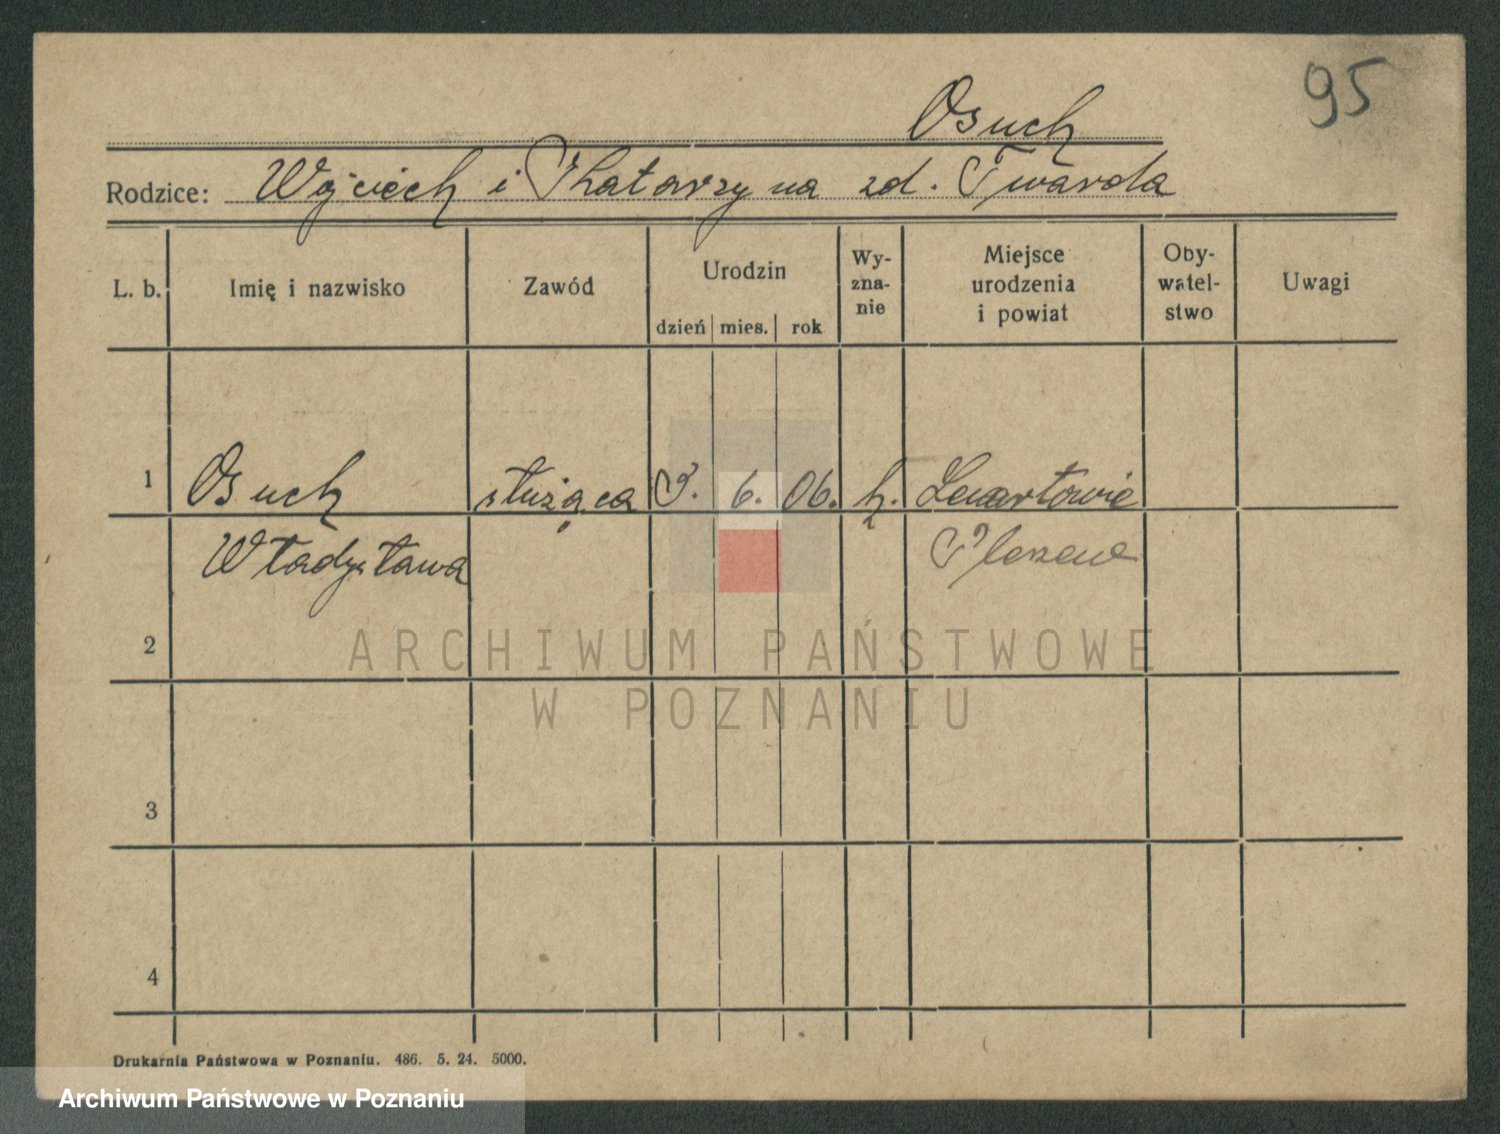 95
Osuch
Rodzice: Wojciech i Katarzyna zd. Twarda
L. b. Imię i nazwisko Zawód Urodzin dzień mies. rok Wy-zna-nie Miejsce urodzenia i powiat Oby-watel-stwo Uwagi
1 Osuch służąca 3. 6. 06. k.
Władysława
2
3
4
ARCHIWUM PAŃSTWOWE
W POZNANIU
Drukarnia Państwowa w Poznaniu. 486. 5. 24. 5000.
Archiwum Państwowe w Poznaniu